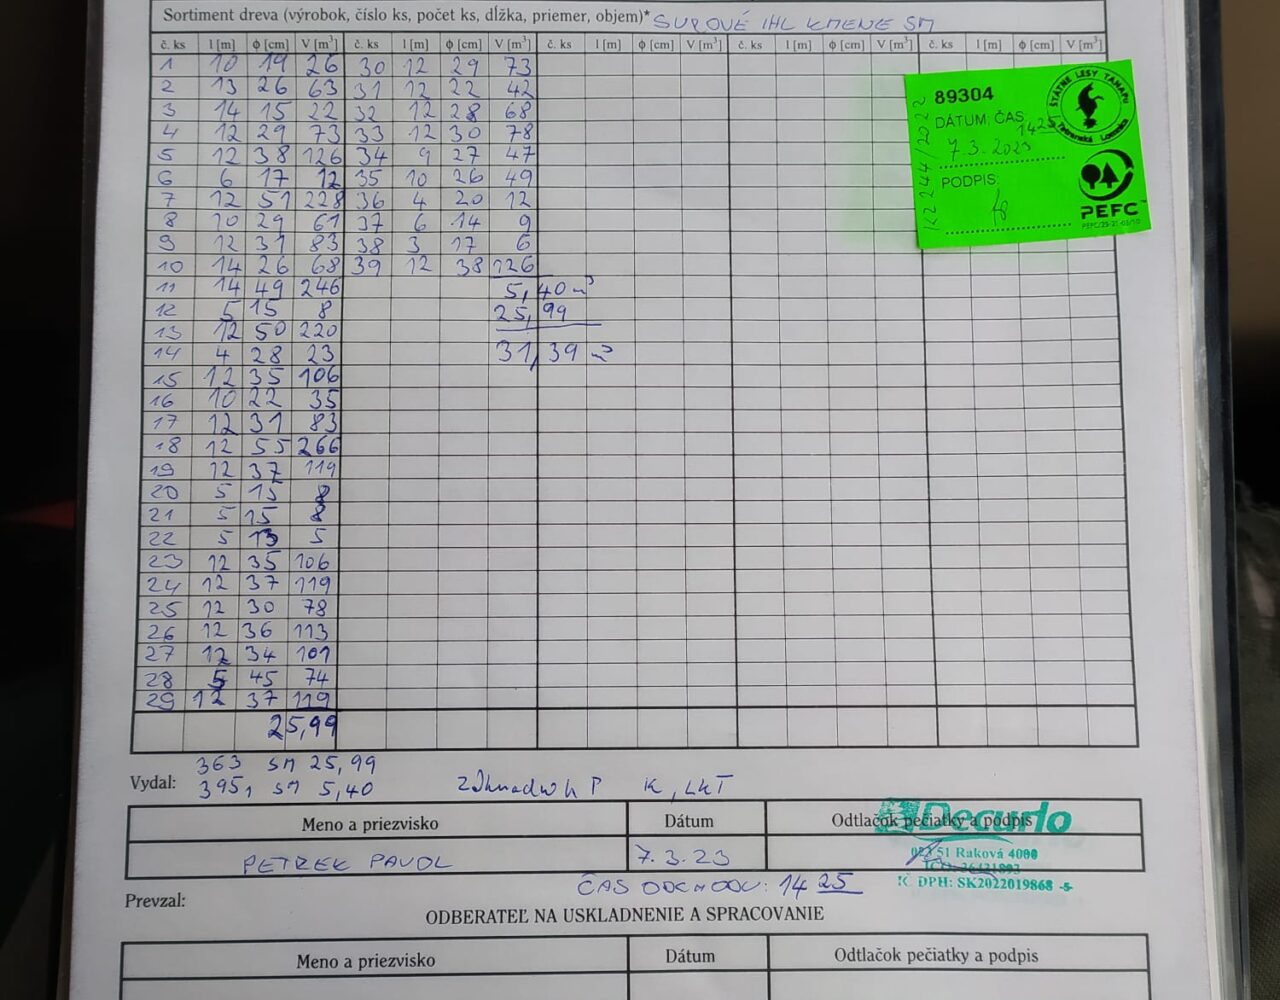 Sortiment dreva (výrobok, číslo ks, počet ks, dĺžka, priemer, objem)* SUROVÉ IHL KMENE SM
č. ks l [m] ϕ [cm] V [m³] č. ks l [m] ϕ [cm] V [m³] č. ks l [m] ϕ [cm] V [m³] č. ks l [m] ϕ [cm] V [m³] č. ks l [m] ϕ [cm] V [m³]
1 10 19 26 30 12 29 73
2 13 26 63 31 12 22 42
3 14 15 22 32 12 28 68
4 12 29 73 33 12 30 78
5 12 38 126 34 9 27 47
6 6 17 12 35 10 26 49
7 12 51 228 36 4 20 12
8 10 29 61 37 6 14 9
9 12 31 83 38 3 17 6
10 14 26 68 39 12 38 126
11 14 49 246 5,40 m³
12 5 15 8 25,99
13 12 50 220
14 4 28 23 31,39 m³
15 12 35 106
16 10 22 35
17 12 31 83
18 12 55 266
19 12 37 119
20 5 15 8
21 5 15 8
22 5 13 5
23 12 35 106
24 12 37 119
25 12 30 78
26 12 36 113
27 12 34 101
28 5 45 74
29 12 37 119
25,99
89304
DÁTUM, ČAS
1425
7.3.2023
PODPIS:
ŠTÁTNE LESY TANAPU
Tatranská Lomnica
PEFC™
K2244/2022
363 SM 25,99
Vydal:
395, SM 5,40 P K, LKT
Meno a priezvisko Dátum Odtlačok pečiatky a podpis
PETREK PAVOL 7.3.23
Decurlo
023 51 Raková 4000
IČ DPH: SK2022019868 -5-
ČAS ODCHODU: 14 25
Prevzal:
ODBERATEĽ NA USKLADNENIE A SPRACOVANIE
Meno a priezvisko Dátum Odtlačok pečiatky a podpis